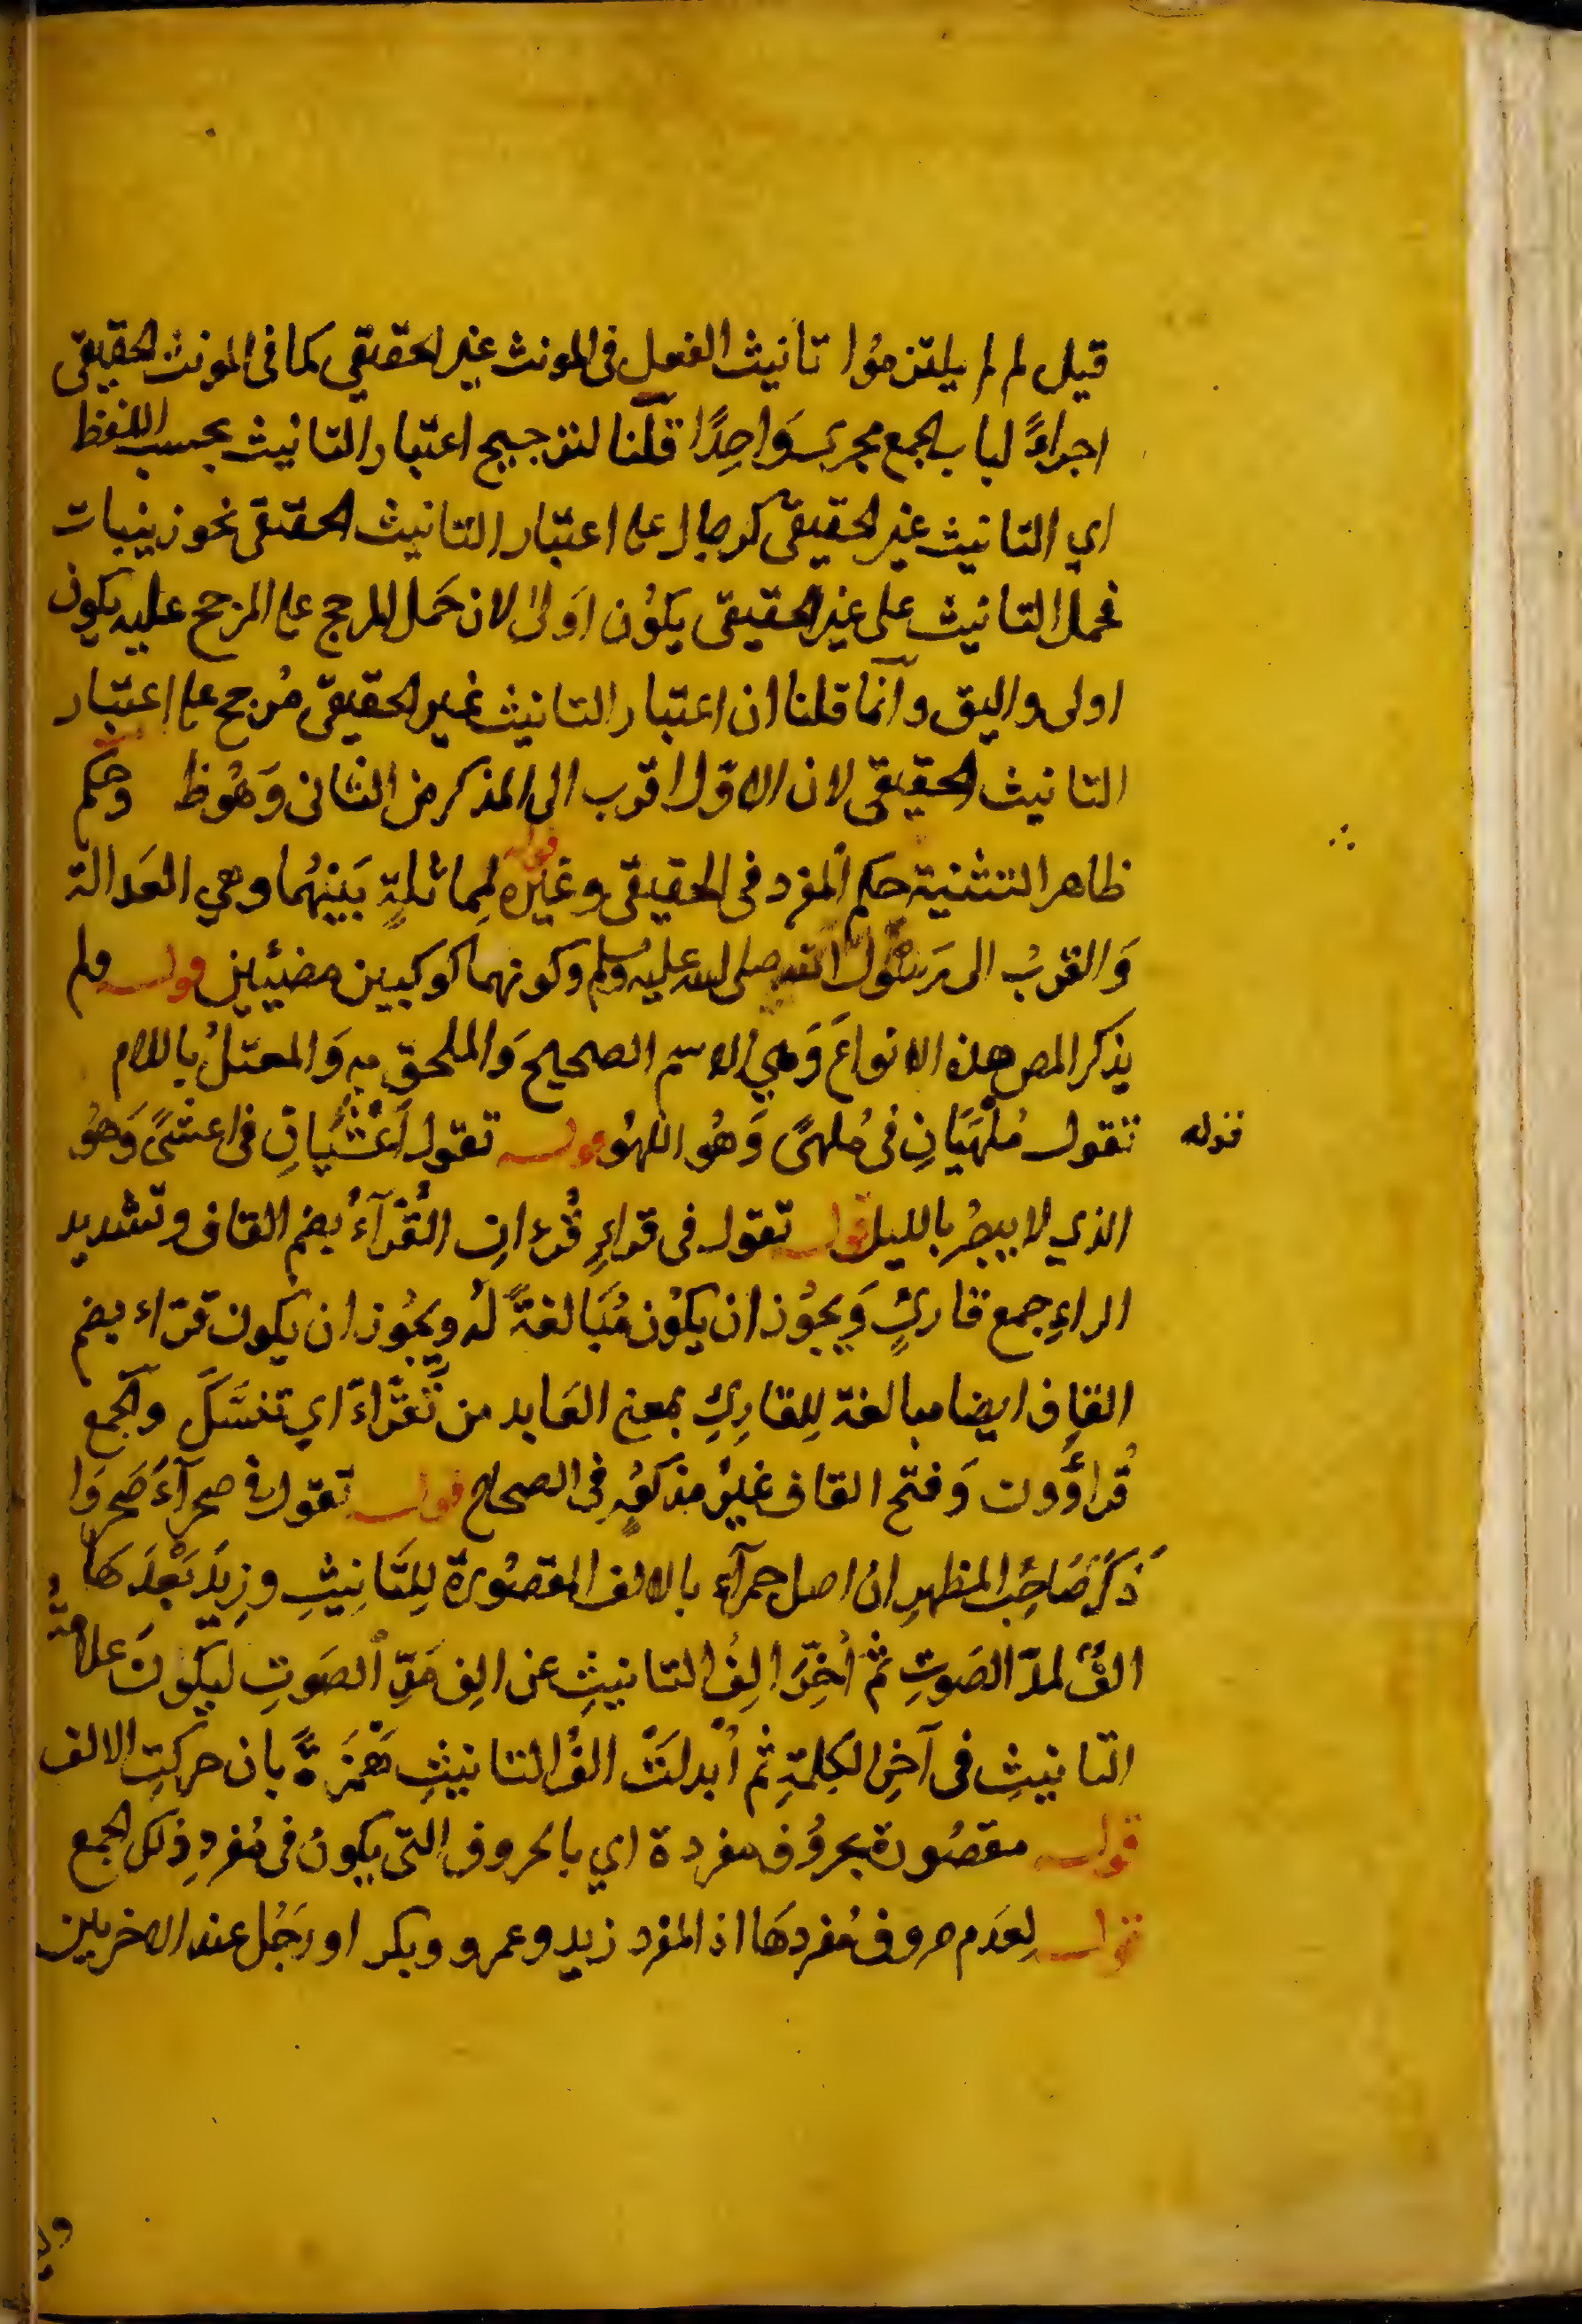 قيل لم لم يلتزموُا تانيث الفعل فى المونث غير الحقيقي كما فى المونث الحقيقى
اجراءً لباب الجمع مجرى وَاحِدًا قلنا لترجيح اعتبار التانيث بحسب اللفظ
اي التانيث غير الحقيقى كرجال على اعتبار التانيث الحقيقى نحو زينبات
فحمل التانيث على غير الحقيقى يكوُن اَولىٰ لان حَمل المرجح على المرجح عليه يكون
اولى واليق وانما قلنا ان اعتبار التانيث غير الحقيقى مُرجح على اعتبار
التانيث الحقيقى لان الاوّل اقرب الى المذكر من الثانى وَهُوظ وحكم
ظاهر التثنية حكم المفرد فى الحقيقى وغيره قوله لِمماثلةٍ بَينهُما وهي العَدالة
وَالقربُ الى رَسُول الله صلى الله عليه وسلم وكونهما كوكبين مضيئين قوله ولم
يذكر المص هذه الانواعَ وَهي الاسم الصحيح وَالملحق به وَالمعتلُ باللام
قوله تقول مُلْهَيَانِ فى مُلهىً وَهُو اللهُو قوله تقول اَعْشَيانِ فى اعشىً وَهُو
الذي لا يبصرُ بالليل قوله تقول فى قراءٍ قُرءانِ القُرّآءُ بضم القاف وتشديد
الراءِ جمع قارئٍ وَيجوُز ان يكوُن مُبَالغةً لهُ ويجُوز ان يكون قرّاء بضم
القاف ايضا مبالغة لِلقارِئِ بمعنى العَابد من تَقَرّاءَ اي تنسَّكَ والجمع
قُراؤُون وَفتح القاف غيرُ مذكورٍ فى الصحاح قوله تقول فى صحرآءَ صَحروَا
ذَكَرَ صَاحِبُ المظهرِ ان اصل حمرآء بالالف المقصُورة لِلتَانِيثِ وزِيدَ بَعْدَهَا
الفٌ لمدّ الصَوتِ ثم اُخِّرَ الِفُ التانيثِ عن الِف مَدِّ الصَوتِ ليكُونَ علامةُ
التانيثِ فى آخِرِ الكلِمَةِ ثم اُبدلَتْ الفُ التانيثِ هَمْزَةً بان حركتِ الالف
قوله مقصُورة بحروُف مفردة اي بالحروف التى يكونُ فى مُفردِ ذلك الجمع
قوله لِعَدَم حروف مُفردهَا اذ المفرد زيد وعمرو وبكر اورَجُل عند الاخرين